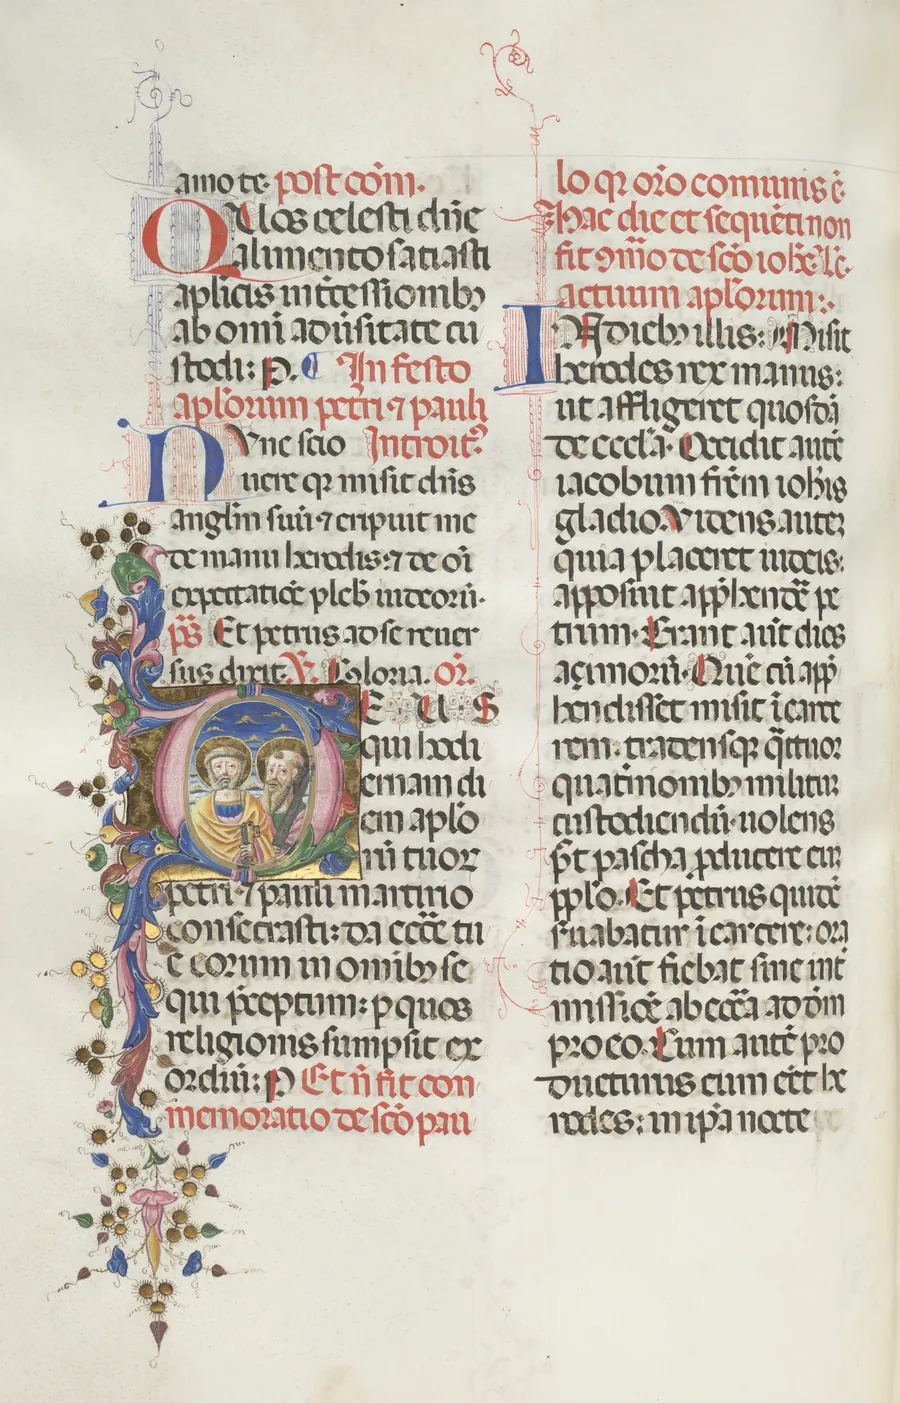 amo te. post com̄.
Quos celesti dn̄e
alimento satiasti
apl̄icis int̄cessionibꝫ
ab omī adūsitate cu
stodi: P. ¶ In festo
apl̄orum petri ⁊ pauli
Nvnc scio Introit᷒
uere qꝛ misit dn̄s
angl̄m suū ⁊ eripuit me
de manu herodis: ⁊ de oī
expectatiōe pleb̄ iudeorū.
ps̄ Et petrus ad se reuer
sus dixit. V. Gloria. or̄.
DEUS
qui hodi
ernam di
em aplo
rū tuor
petri ⁊ pauli martirio
consecrasti: da eccl̄e tu
e eorum in omībꝫ se
qui p̄ceptum: p quos
religionis sumpsit ex
ordiū: P Et n̄ fit con
memoratio de sc̄o pau
lo qꝛ or̄o comunis ē
Hac die et sequēti non
fit ꝯm̄o de sc̄o ioh̄e. Lc̄.
actuum apl̄orum:.
IN diebꝫ illis: Misit
herodes rex manus:
ut affligeret quosdā
de eccl̄a. Occidit autē
iacobum frēm ioh̄is
gladio. Videns auteꝫ
quia placeret iudeis:
apposuit app̄hendē pe
trum. Erant aūt dies
açimorū. Quē cū app̄
hendisset misit ī carce
rem: tradens qꝫ q̄ttuor
quat̄nionibꝫ militū
custodiendū. uolens
p̄t pascha ꝓducere eū
pplo. Et petrus quidē
s̄uabatur ī carcere: ora
tio aūt fiebat sine int̄
missiōe ab ecc̄a ad d̄m
pro eo. Cum autē pro
ducturus eum eēt he
rodes: in ip̄a nocte